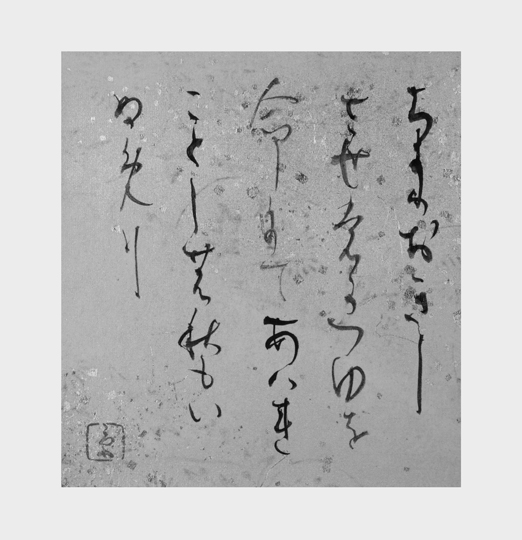 ちきりおきし
させもかつゆを
命にてあはれ
ことしの秋もい
ぬめり